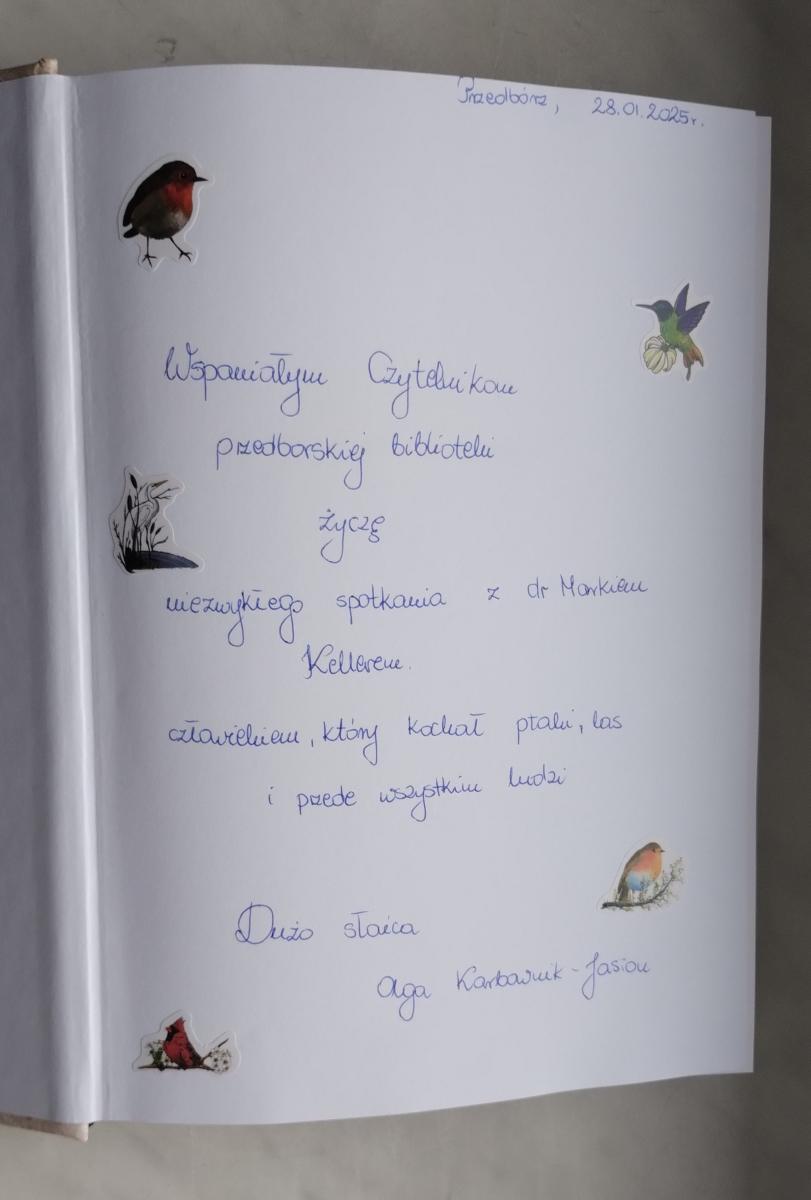 Przedbórz, 28.01.2025r.
Wspaniałym Czytelnikom
przedborskiej biblioteki
życzę
niezwykłego spotkania z dr Markiem
Kellerem.
człowiekiem, który kochał ptaki, las
i przede wszystkim ludzi
Dużo słońca
Aga Karbownik-Jasion